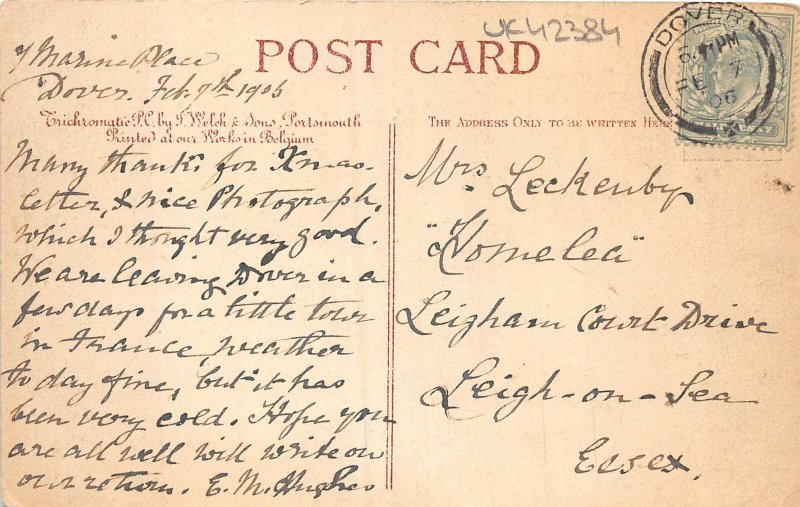 POST CARD
UK42384
DOVER
5.  PM
FE 7
06
7 Marine Place
Dover. Feb. 7th 1905
Trichromatic P.C. by J. Welch & Sons, Portsmouth
Printed at our Works in Belgium
THE ADDRESS ONLY TO BE WRITTEN HERE
Many thanks for Xmas
letter, & nice Photograph,
which I thought very good.
We are leaving Dover in a
few days for a little town
in France, weather
to day fine, but it has
been very cold. Hope you
are all well will write on
our return. E. M. Hughes
Mrs Leckenby
"Homelea"
Leigham Court Drive
Leigh-on-Sea
Essex.